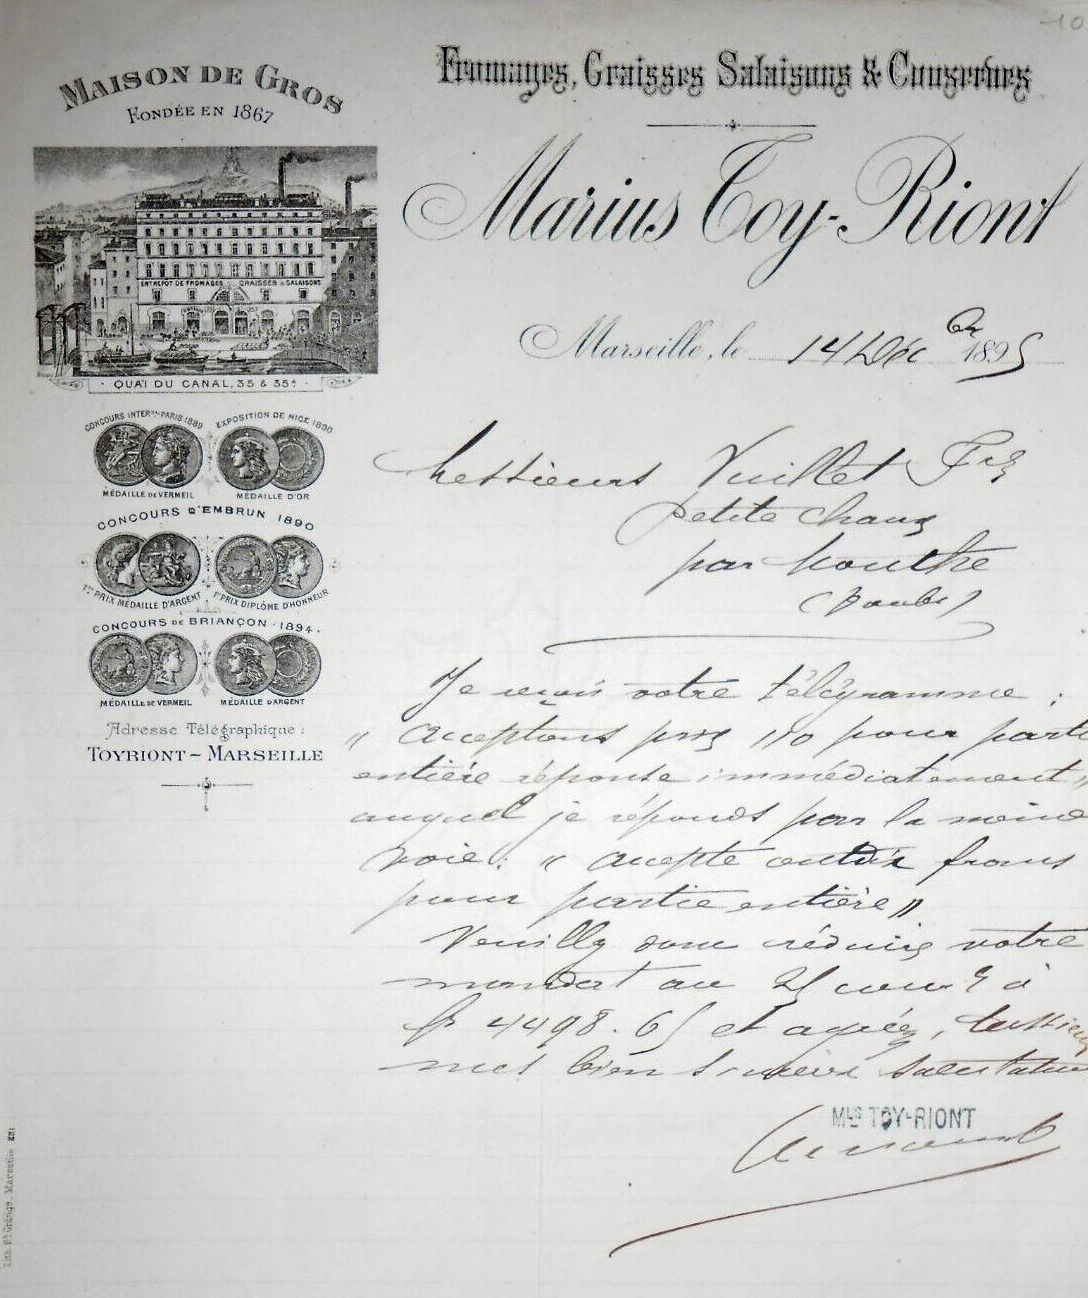 Maison de Gros
Fondée en 1867
Entrepot de Fromages Graisses & Salaisons
Quai du Canal, 35 & 35ᴬ
Concours Interⁿᵃˡ Paris 1889
Exposition de Nice 1890
Médaille de Vermeil
Médaille d'Or
Concours d'Embrun 1890
1ᵉʳ Prix Médaille d'Argent
1ᵉʳ Prix Diplôme d'Honneur
Concours de Briançon - 1894.
Médaille de Vermeil
Médaille d'Argent
Adresse Télégraphique :
Toyriont – Marseille
Fromages, Graisses Salaisons & Conserves
Marius Toy-Riont
Marseille, le 14 Déc bre 1895
Messieurs Vuillet Frs
petite Chaux
par Mouthe
(Doubs)
Je reçois votre télégramme :
" acceptons prix 110 pour partie
entière réponse immédiatement "
auquel je réponds par la même
voie : " accepte francs
pour partie entière "
Veuillez donc réduire votre
mandat au 25 à
f 4498.65 et agréez, Messieurs
mes bien sincères salutations
Mᴵᵁˢ TOY-RIONT
Lith. Marseille